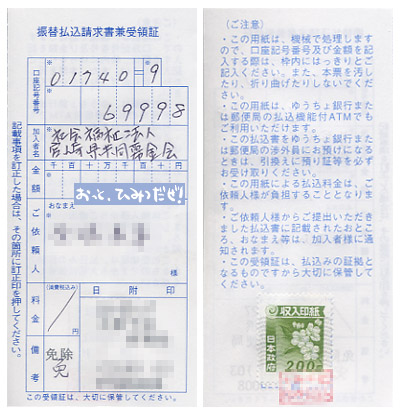 振替払込請求書兼受領証
口座記号番号
0 1 7 4 0 = 9
6 9 9 9 8
加入者名
社会福祉法人
宮崎県共同募金会
金額
千 百 十 万 千 百 十 円
おっと、ひみつだぜ!
ご依頼人
おなまえ
様
料金
(消費税込み)
円
日附印
備考
免除
免
この受領証は、大切に保管してください。
記載事項を訂正した場合は、その箇所に訂正印を押してください。
(ご注意)
・この用紙は、機械で処理しますので、口座記号番号及び金額を記入する際は、枠内にはっきりとご記入ください。また、本票を汚したり、折り曲げたりしないでください。
・この用紙は、ゆうちょ銀行または郵便局の払込機能付きATMでもご利用いただけます。
・この払込書をゆうちょ銀行または郵便局の渉外員にお預けになるときは、引換えに預り証等を必ずお受け取りください。
・この用紙による払込料金は、ご依頼人様が負担することとなります。
・ご依頼人様からご提出いただきました払込書に記載されたおところ、おなまえ等は、加入者様に通知されます。
・この受領証は、払込みの証拠となるものですから大切に保管してください。
収入印紙
日本政府
200